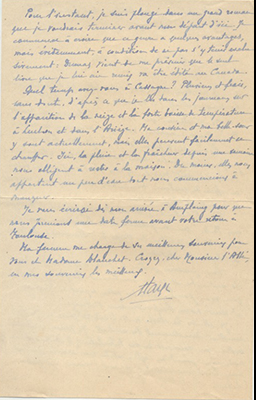 Pour l'instant, je suis plongé dans un grand roman
que je voudrais terminer avant mon départ d'ici. Je
commence à croire que ce genre a quelques avantages,
mais évidemment, à condition de ne pas s'y tenir exclu-
sivement. Dumas vient de me prévenir que le
que je lui ai va être édité au Canada.
Quel temps avez-vous à Cassagne ? Pluvieux et frais,
sans doute, d'après ce que je lis dans les journaux sur
l'apparition de la neige et la forte baisse de température
à Luchon et dans l'Ariège. Ma et ma belle-sœur
y sont actuellement, mais elles peuvent facilement se
chauffer. Ici, la pluie et la fraîcheur depuis une semaine
nous obligent à rester à la maison. Du moins, elles nous
apportent un peu d'eau dont nous commencions à
manquer.
Je vous écrirai dès mon arrivée à pour que
nous prenions une date ferme avant votre retour à
Toulouse.
Ma femme me charge de ses meilleurs souvenirs pour
vous et Madame Blanchet. Croyez, cher Monsieur et Ami,
en mes souvenirs les meilleurs.